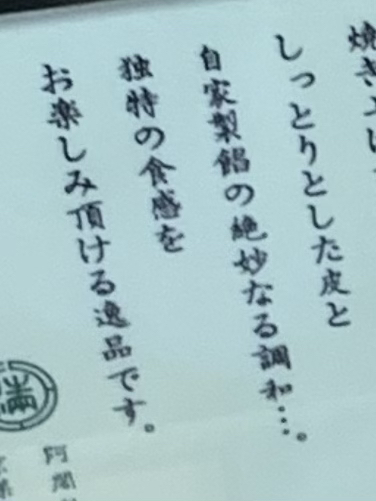 焼き上げ
しっとりとした皮と
自家製餡の絶妙なる調和…。
独特の食感を
お楽しみ頂ける逸品です。
満
阿闍